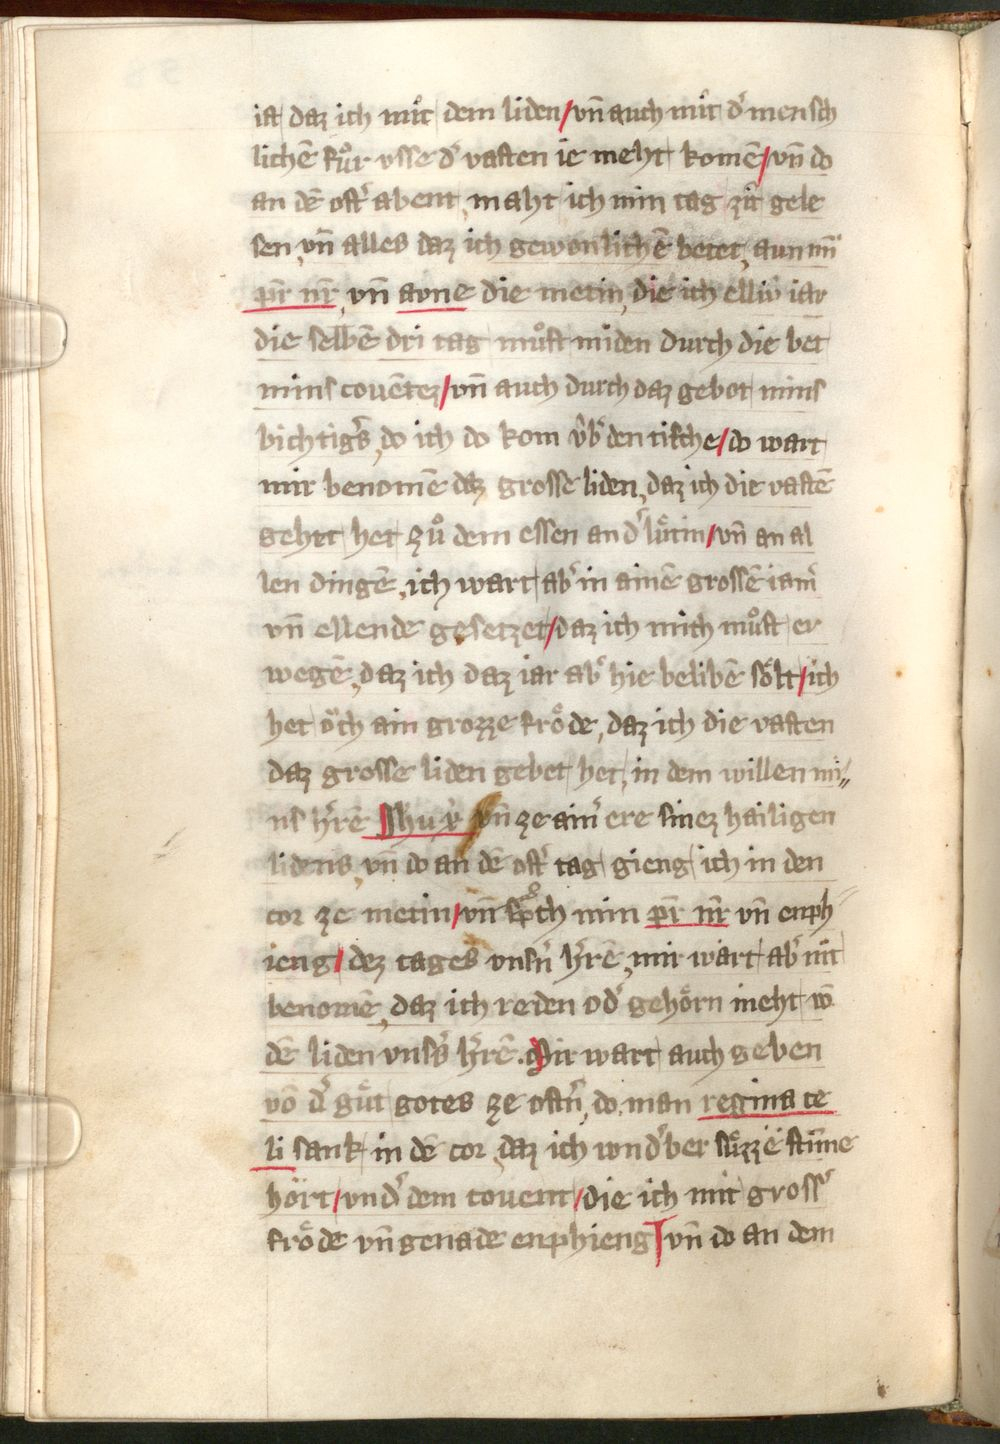 ia daz ich mit dem liden / vn̄ auch mit d᷎ mensch
lichē fuͦr vsse d᷎ vasten ie meht komē / vn̄ do
an dē ost᷎ abent, maht ich min tag zit gele
sen, vn̄ alles daz ich gewonlichē betet, aun min
pr̄ nr̄, vn̄ avne die metin, die ich elliv iar
die selbē dri tag muͦst miden durch die bet
mins covētez / vn̄ auch durch daz gebot mins
bichtig᷎s, do ich do kom v̂b᷎ den tische / do wart
mir benomē daz grosse liden, daz ich die vastē
gehtt het zuͦ dem essen an d᷎ luͤtin / vn̄ an al
len dingē, ich wart ab᷎ in ainē grossē iam᷎
vn̄ ellende gesetzet / daz ich mich muͦst er
wegē, daz ich daz iar ab᷎ hie belibē soͤlt / ich
het oͮch ain grozze froͤde, daz ich die vasten
daz grosse liden gehet het, in dem willen mi〃
ns h᷎rē Jhu xp̄i vn̄ ze ain᷎ ere sinez hailigen
lidens, vn̄ do an dē ost᷎ tag gieng ich in den
cor ze metin / vn̄ sp᷎ch min pr̄ nr̄ vn̄ enph
ieng / dez tages vns᷎n h᷎rē, mir wart ab᷎ nit
benomē, daz ich reden od᷎ gehoͤrn meht vō
dē liden vns᷎s h᷎rē. Mir wart auch geben
vō d᷎ guͤt gotes ze ost᷎n, do man regina ce
li sank in dē cor, daz ich wnd᷎ber suͤzzē stim̄e
hoͤrt / vnd᷎ dem covent / die ich mit gross᷎
froͤde vn̄ genade enphieng / vn̄ do an dem